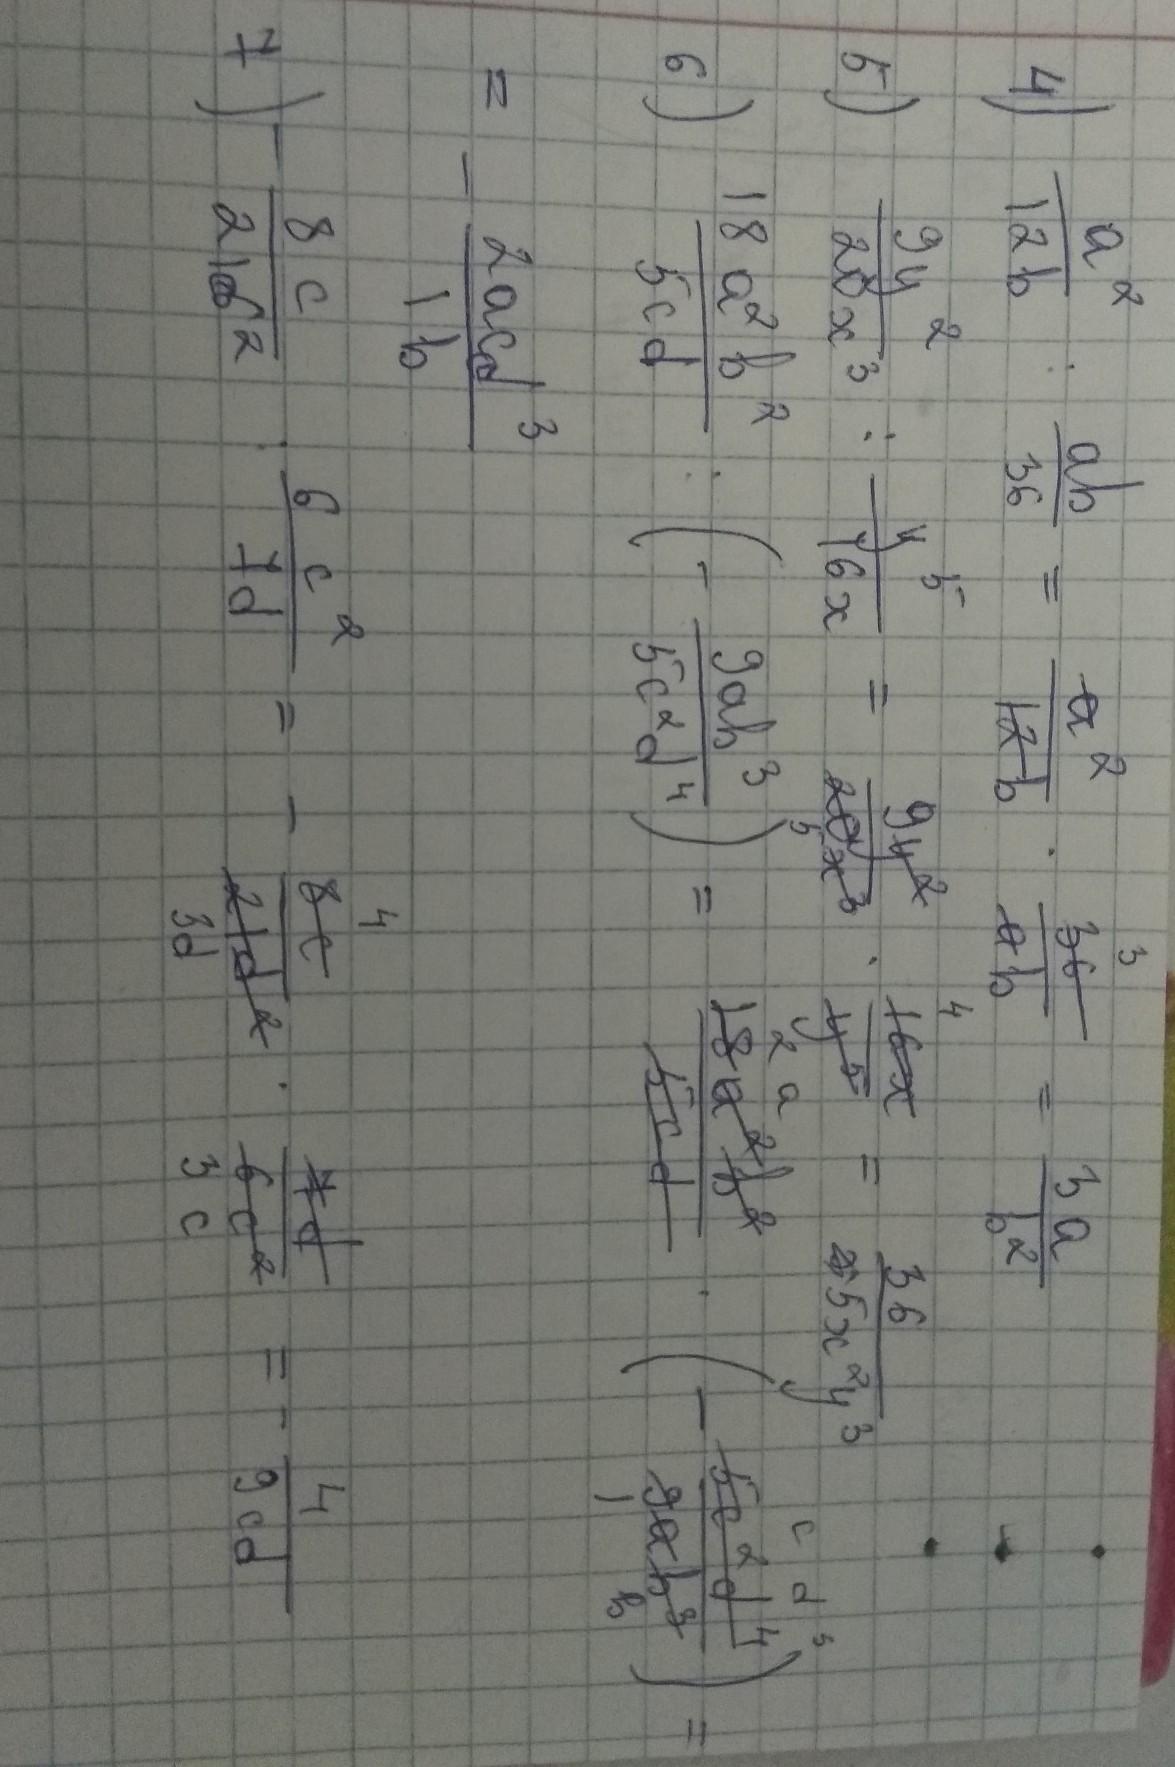 4) a²/12b : ab/36 = a²/12b · 36/ab = 3a/b²
5) 9y²/20x³ : y⁵/16x = 9y²/20x³ · 16x/y⁵ = 36/5x²y³
6) 18a²b²/5cd : (- 9ab³/5c²d⁴) = 18a²b²/5cd · (- 5c²d⁴/9ab³) =
= - 2acd³/1b
7) - 8c/21d² : 6c²/7d = - 8c/21d² · 7d/6c² = - 4/9cd